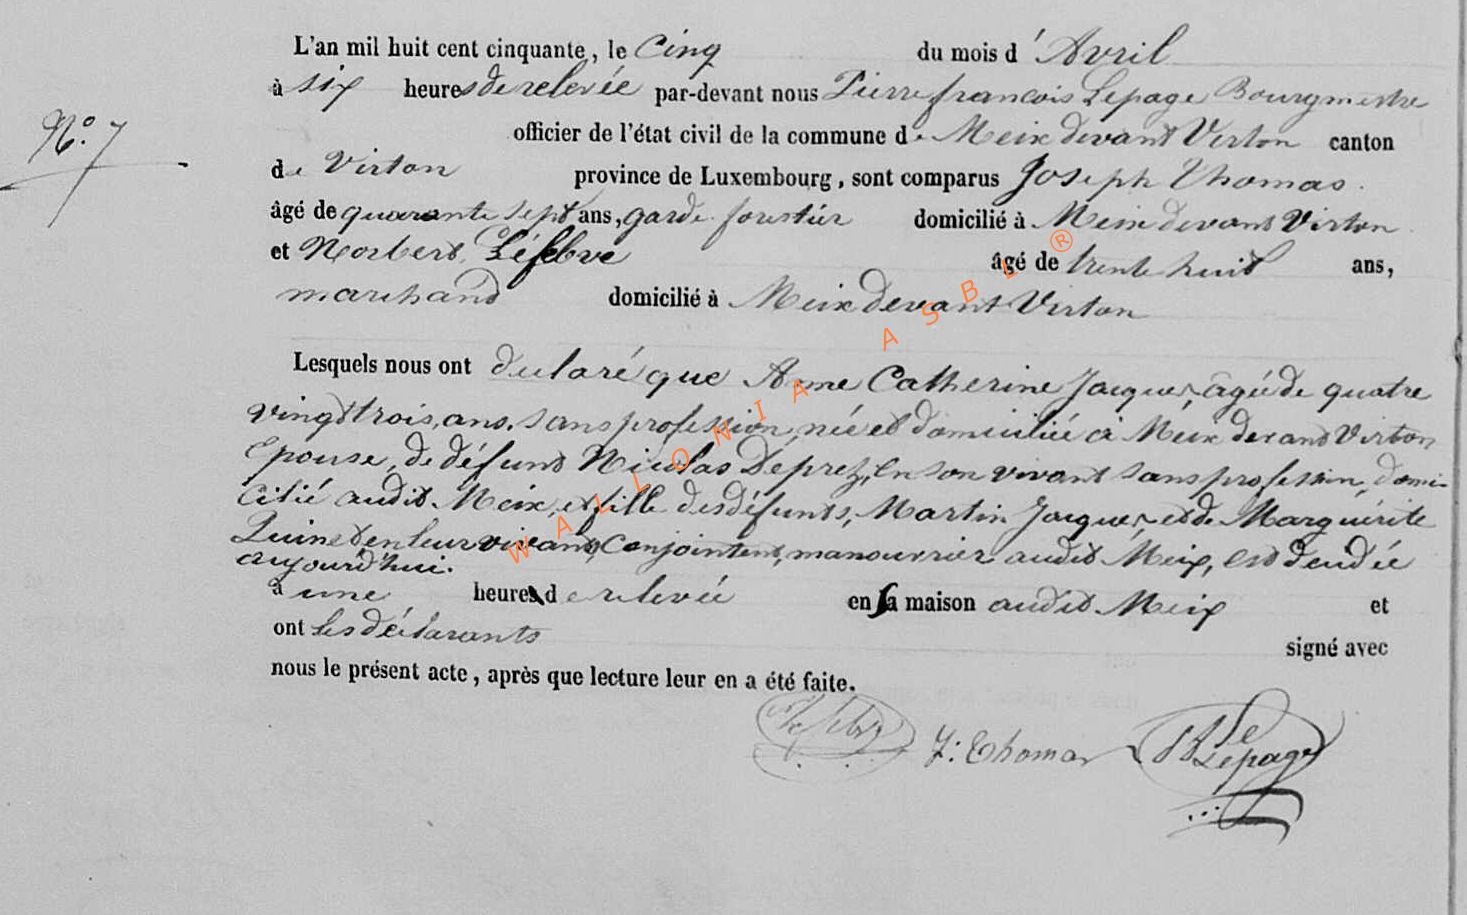 L'an mil huit cent cinquante, le Cinq du mois d'Avril
à six heures de relevée par-devant nous Pierre francois Lepage Bourgmestre
N.º 7
officier de l'état civil de la commune de Meix devant Virton canton
de Virton province de Luxembourg, sont comparus Joseph Thomas.
âgé de quarante sept ans, garde forestier domicilié à Meix devant Virton
et Norbert Léfebvre âgé de trente huit ans,
marchand domicilié à Meix devant Virton
Lesquels nous ont declaré que Anne Catherine Jacques, agée de quatre
vingt trois, ans. sans profession, née et domiciliée à Meix devant Virton
Epouse, de défunt Nicolas Deprez, en son vivant sans profession, domi-
cilié audit Meix, et fille des défunts, Martin Jacques, et de Marguérite
en leur vivant, Conjointent, manouvrier audit Meix, est décédée
aujourd'hui.
à une heure de relevée en sa maison audit Meix et
ont les déclarants signé avec
nous le présent acte, après que lecture leur en a été faite.
J: Thomas Lepage
WALLONIA ASBL ®